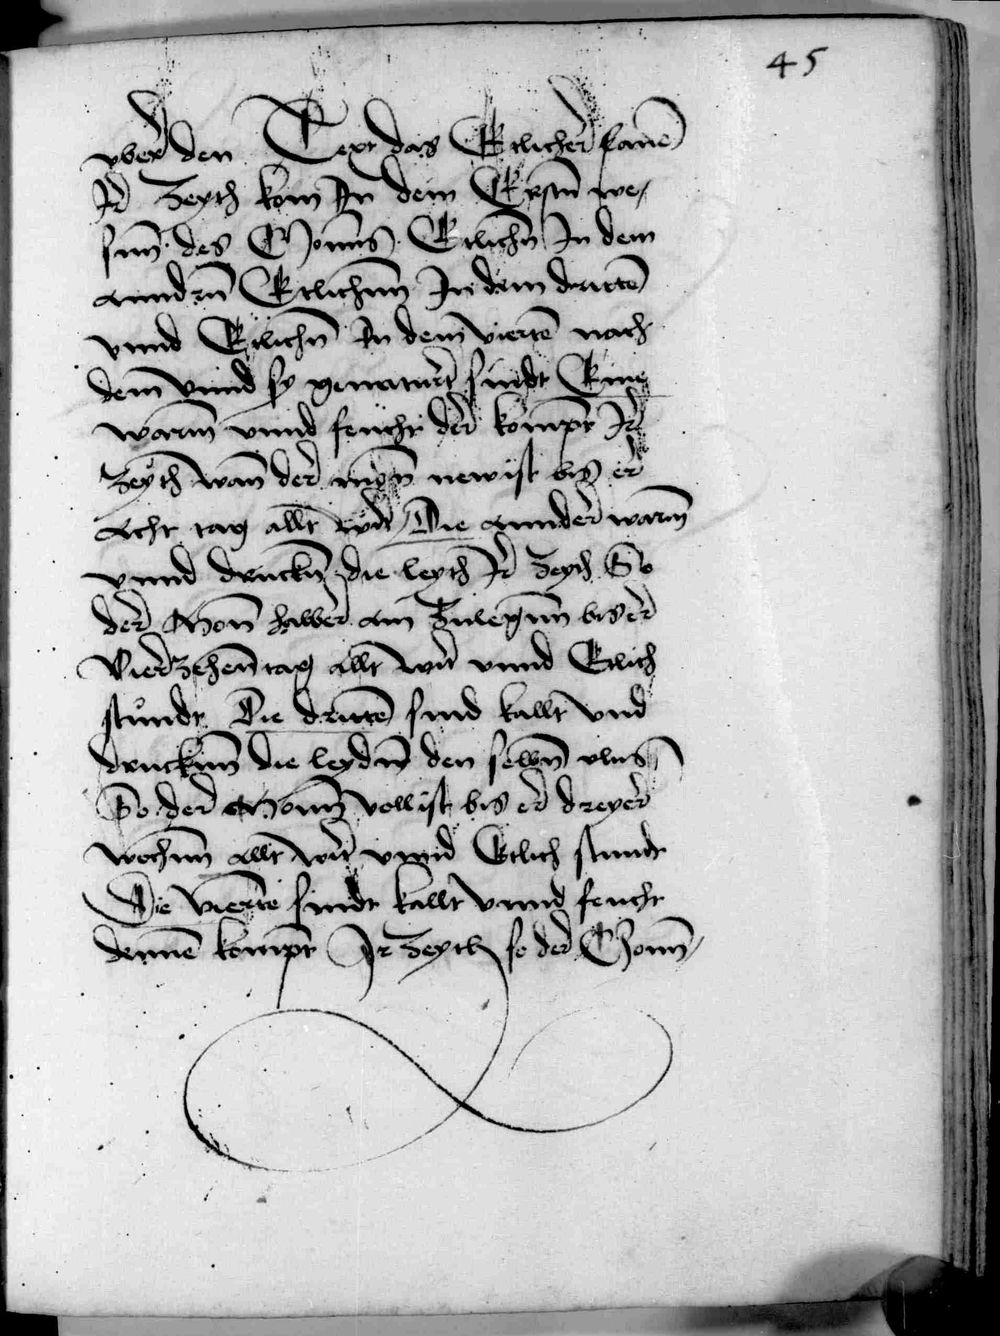 45
vber den Text das Etlicher fawē
Ir Zeyth kom In dem Erstn we,
snn des Monns Etlichn In dem
anndrn Etlichnn In dem dritten
vnnd Etlichn In dem vierten nach
dem vnnd sy genaturt sindt Eine
warm vnnd feucht der kompt Ir
Zeyth wan der mon new ist bis er
Acht tag allt wirt Die annder warm
vnnd druckn die leyth Ir Zeyth So
der Mon halber am Zulegnn bis er
Vierzehen tag allt wirt vnnd Etlich
stundt Die dritten sind kallt vnd
drucknn die leydn den selbn vlus
So der Monn voll ist bis er dreyer
wochnn allt wirt vnnd Etlich stundt
Die Vierte sindt kallt vnnd feucht
dennē kompt Ir Zeyth so der Monn